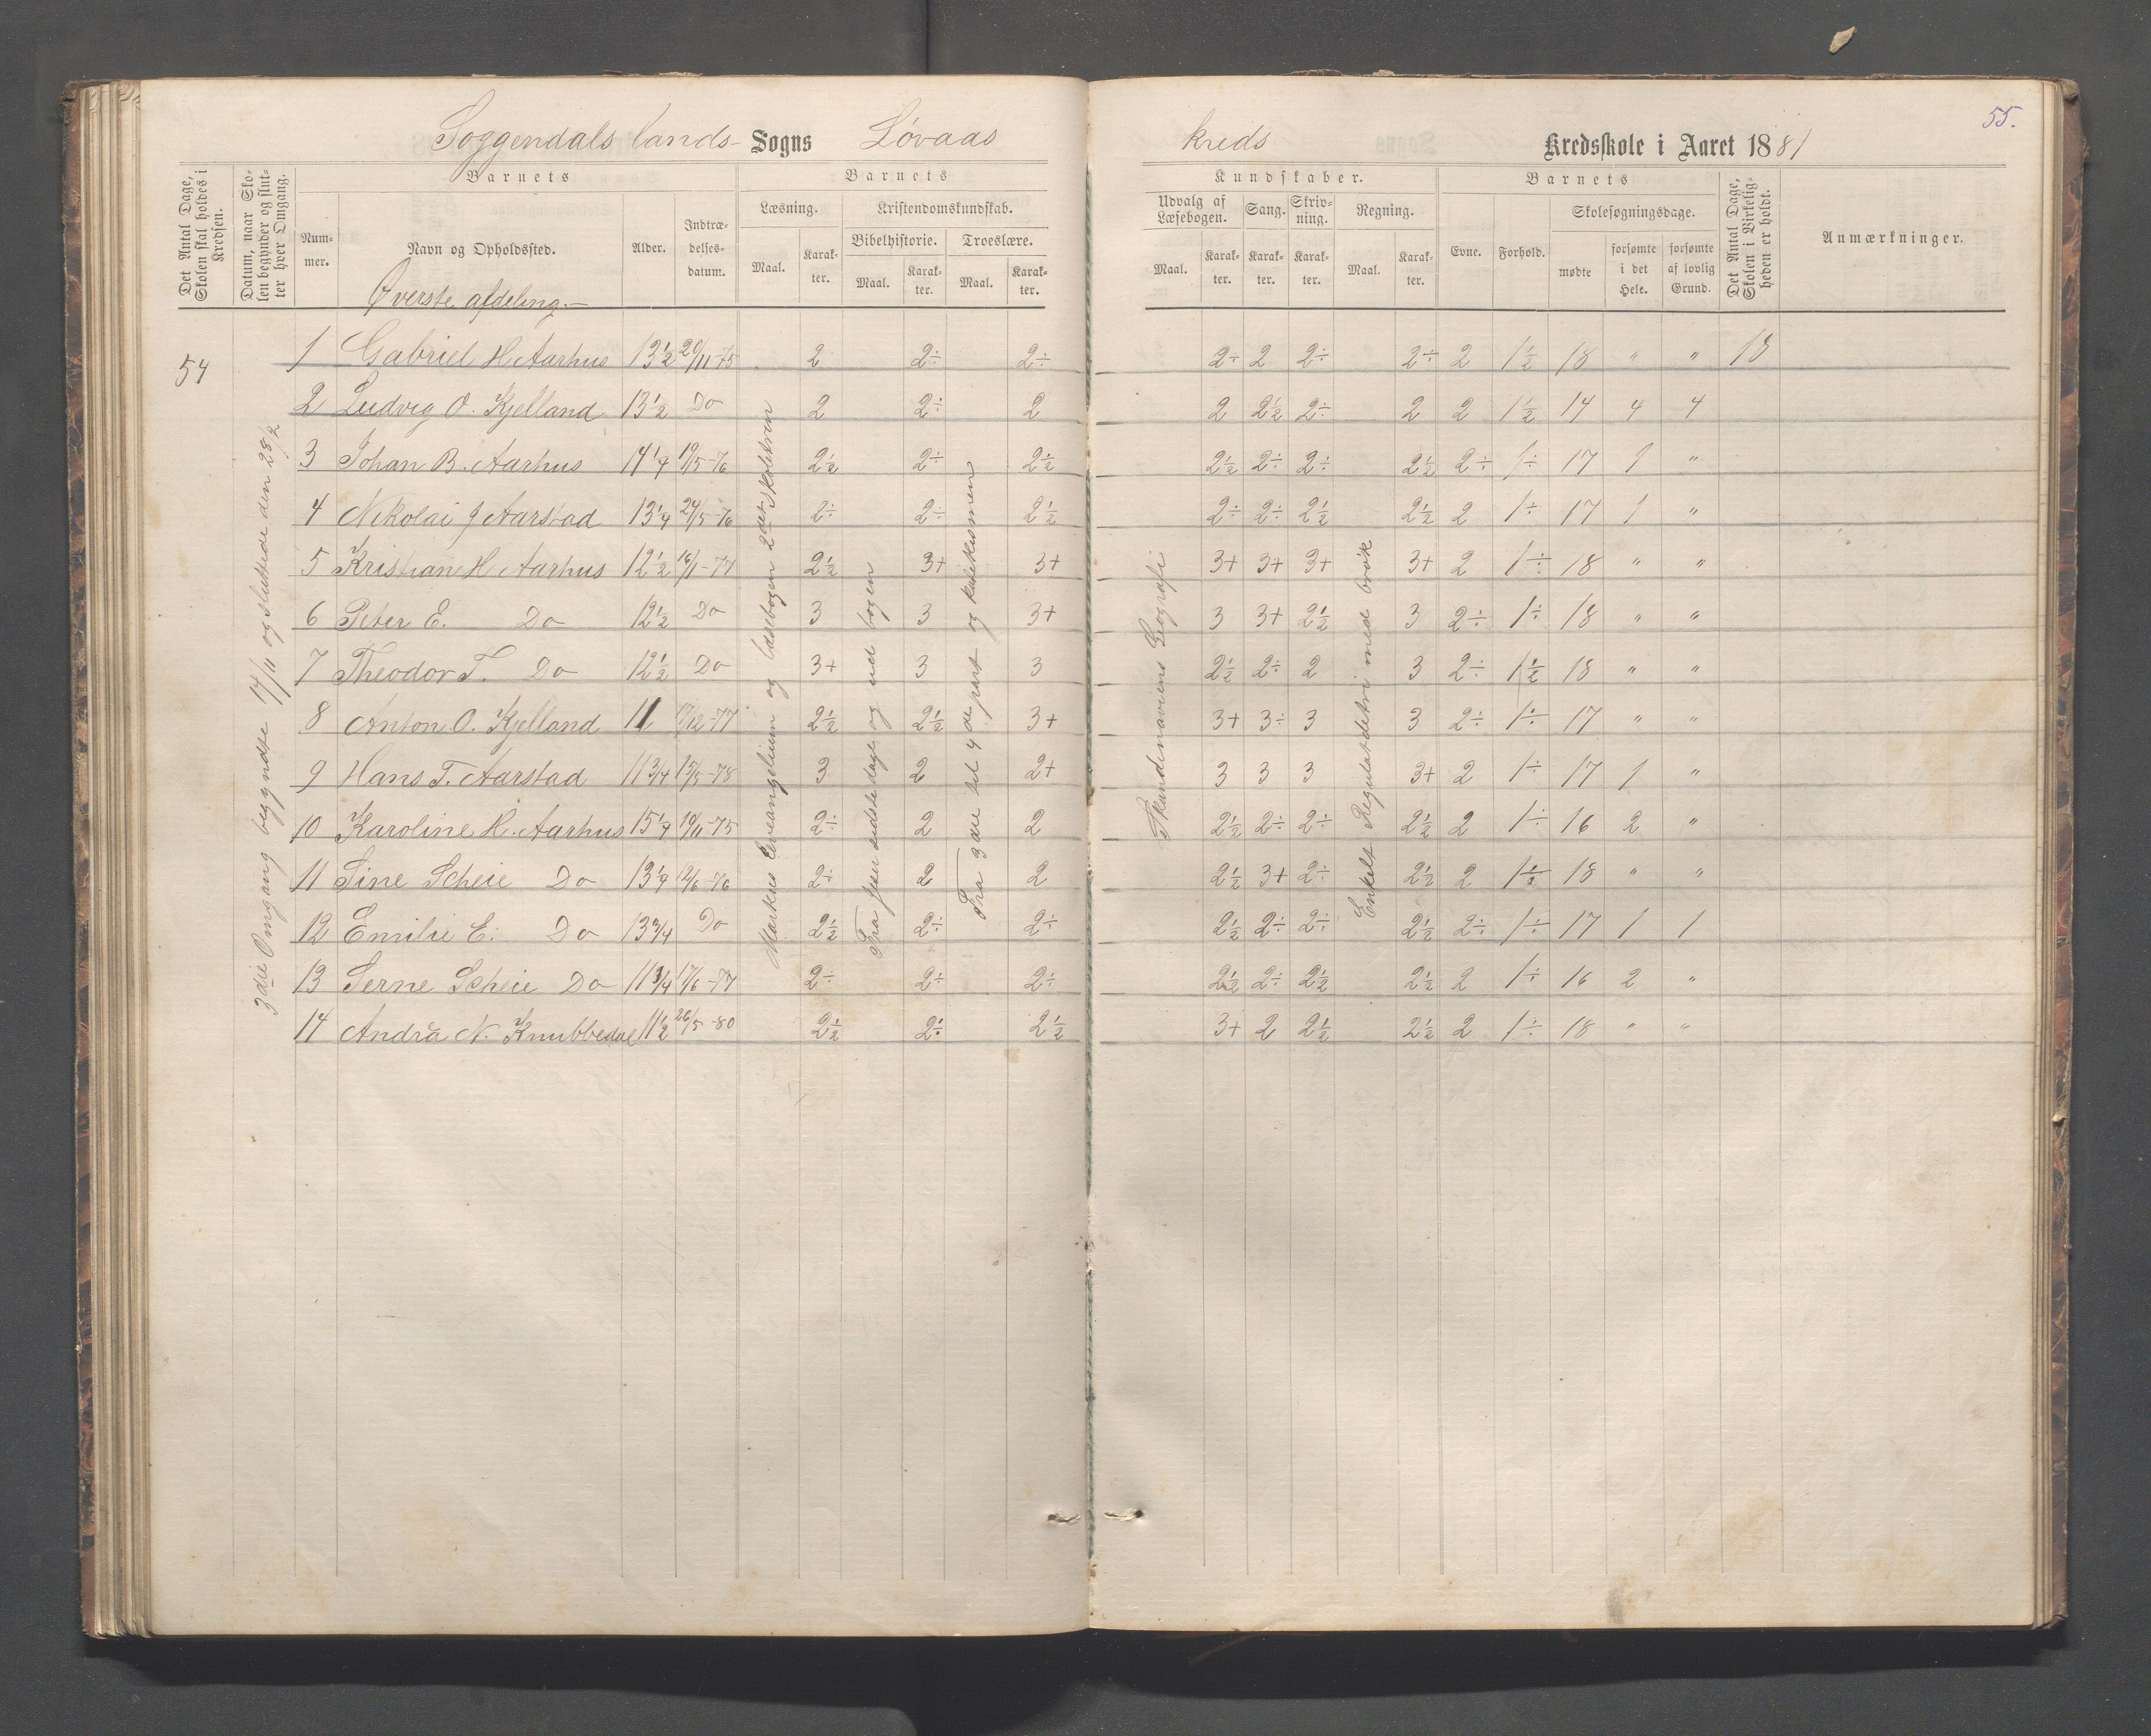 55.
Soggendals lands- Sogns Løvaas kreds Kredsskole i Aaret 1881
Det Antal Dage, Skolen skal holdes i Kredsen.
Datum, naar Skolen begynder og slutter hver Omgang.
Barnets
Nummer.
Navn og Opholdssted.
Alder.
Indtrædelsesdatum.
Barnets
Læsning.
Maal.
Karakter.
Kristendomskundskab.
Bibelhistorie.
Maal.
Karakter.
Troeslære.
Maal.
Karakter.
Kundskaber.
Udvalg af Læsebogen.
Maal.
Karakter.
Sang.
Karakter.
Skrivning.
Karakter.
Regning.
Maal.
Karakter.
Barnets
Evne.
Forhold.
Skolesøgningsdage.
mødte
forsømte i det Hele.
forsømte af lovlig Grund.
Det Antal Dage, Skolen i Virkeligheden er holdt.
Anmærkninger.
Øverste afdeling.—
54
3die Omgang begyndte 14/11 og sluttede den 28/2
Markus Evangelium og læsebogen 2det skoletrin
Fra Jesu sidste dage og ud bogen
Fra 3die til 4de part og katekismen
Skandinaviens Geografi
Enkelt Regulatdetri med brøk
1 Gabriel H Aarhus 13½ 20/11-75 2 2÷ 2÷ 2÷ 2 2÷ 2÷ 2 1½ 18 " " 18
2 Ludvig O. Kjelland 13½ Do 2 2÷ 2 2 2½ 2÷ 2 2 1½ 14 4 4
3 Johan B. Aarhus 14¼ 19/5-76 2½ 2÷ 2½ 2½ 2÷ 2÷ 2½ 2÷ 1÷ 17 1 "
4 Nikolai J Aarstad 13¼ 24/5-76 2÷ 2÷ 2½ 2÷ 2÷ 2½ 2½ 2 1÷ 17 1 "
5 Kristian H Aarhus 12½ 16/1-77 2½ 3+ 3+ 3+ 3+ 3+ 3+ 2 1÷ 18 " "
6 Peter E. Do 12½ Do 3 3 3+ 3 3+ 2½ 3 2÷ 1÷ 18 " "
7 Theodor T. Do 12½ Do 3+ 3 3 2½ 2÷ 2 3 2÷ 1½ 18 " "
8 Anton O. Kjelland 11 17/12-77 2½ 2½ 3+ 3+ 3÷ 3 3 2÷ 1÷ 17 " "
9 Hans T. Aarstad 11¾ 15/5-78 3 2 2+ 3 3 3 3+ 2 1÷ 17 1 "
10 Karoline H. Aarhus 15¼ 19/11-75 2÷ 2 2 2½ 2÷ 2÷ 2½ 2 1÷ 16 2 "
11 Sine Scheie Do 13¼ 12/6-76 2÷ 2 2 2½ 3+ 2÷ 2½ 2 1÷ 18 " "
12 Emilie E. Do 13¾ Do 2½ 2÷ 2÷ 2½ 2÷ 2÷ 2½ 2÷ 1÷ 17 1 1
13 Serne Scheie Do 11¾ 17/6-77 2÷ 2÷ 2÷ 2½ 2÷ 2½ 2½ 2 1÷ 16 2 "
14 Andrea N. Knubbedal 11½ 26/5-80 2½ 2÷ 2½ 3+ 2 2½ 2½ 2 1÷ 18 " "